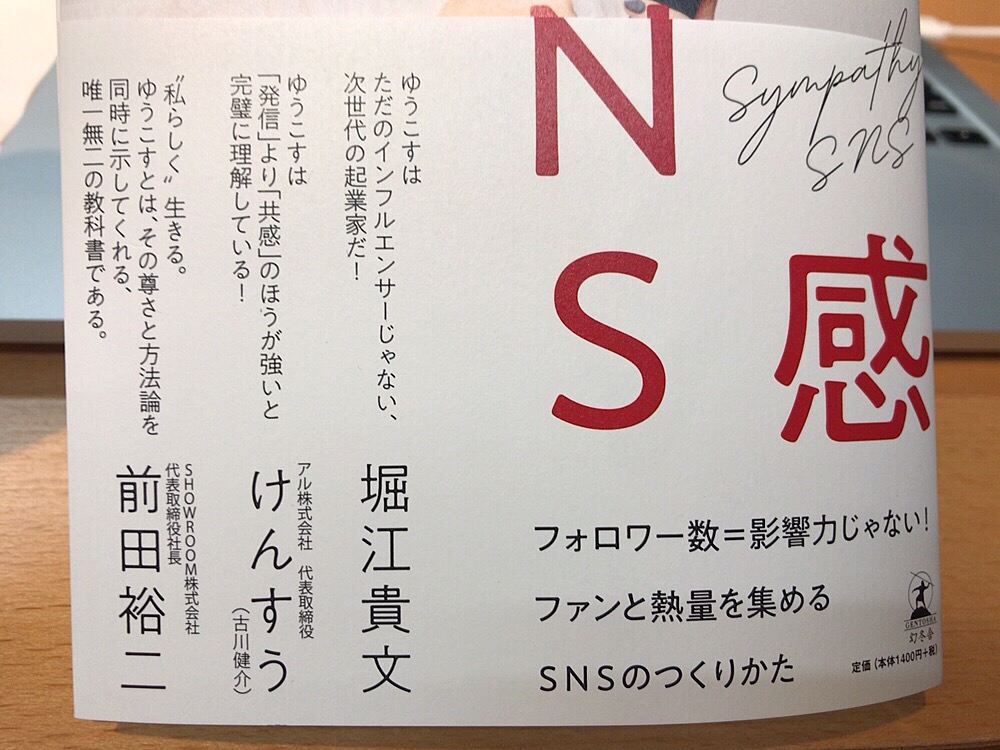 感
N
S
Sympathy
SNS
フォロワー数=影響力じゃない!
ファンと熱量を集める
SNSのつくりかた
GENTOSHA
幻冬舎
定価(本体1400円+税)
ゆうこすは
ただのインフルエンサーじゃない、
次世代の起業家だ!
堀江貴文
ゆうこすは
「発信」より「共感」のほうが強いと
完璧に理解している!
アル株式会社 代表取締役
けんすう
(古川健介)
"私らしく"生きる。
ゆうこすとは、その尊さと方法論を
同時に示してくれる、
唯一無二の教科書である。
SHOWROOM株式会社
代表取締役社長
前田裕二